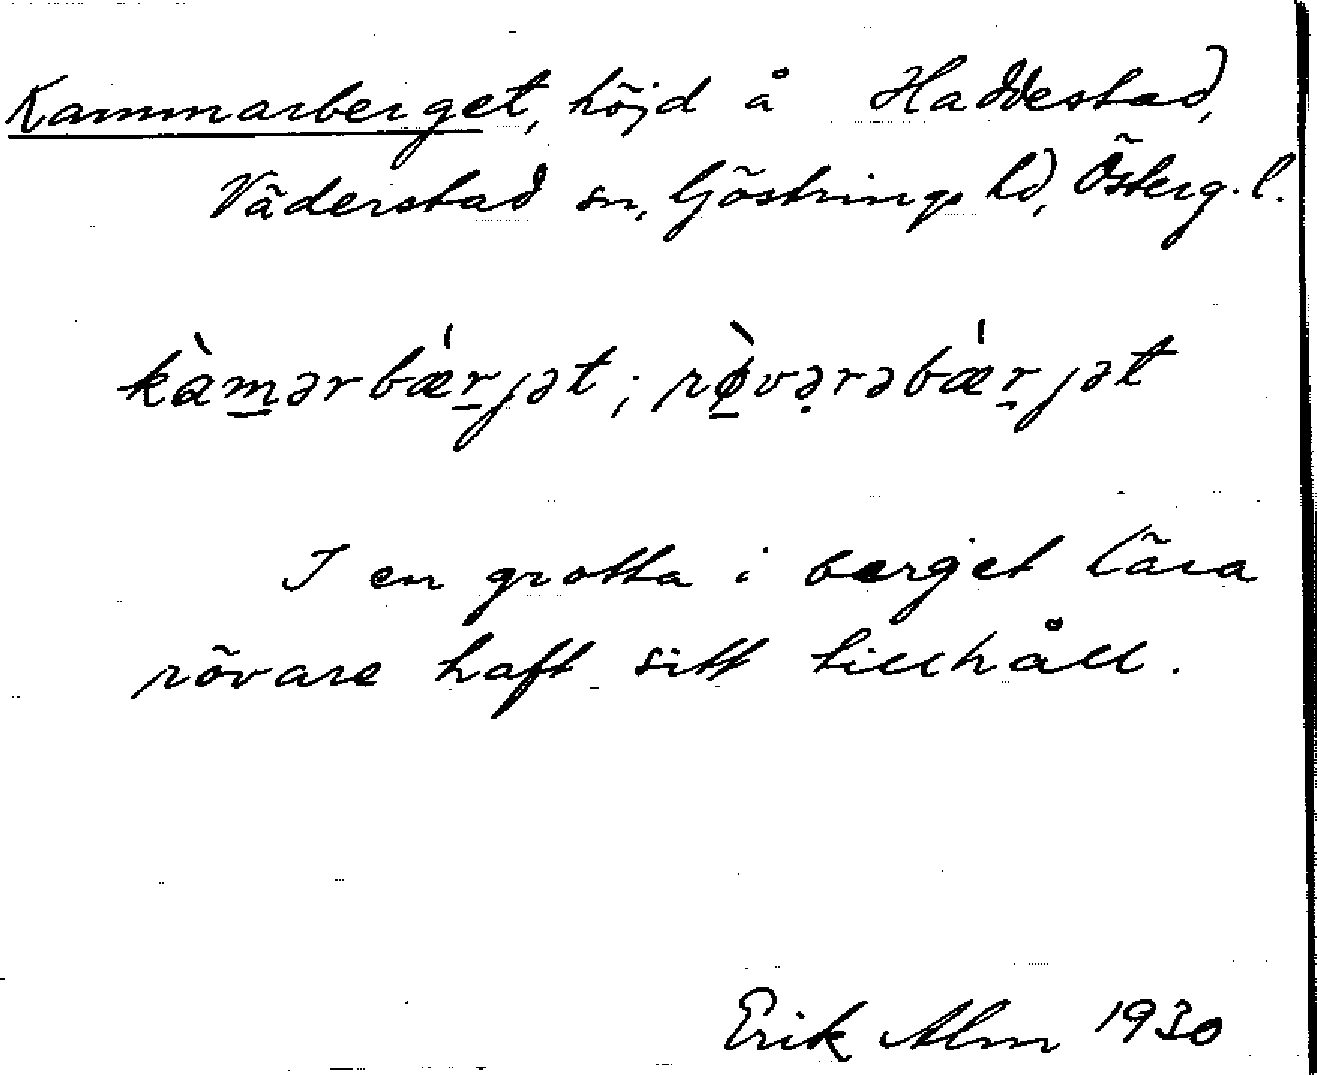 Kammarberget, höjd å Haddestad,
Väderstad sn, Göstrings hd, Österg. l.
kàm̱ərbǽṟjət; rø̱̀və̣rəbǽṟjət
I en grotta i berget lära
rövare haft sitt tillhåll.
Erik Alm 1930